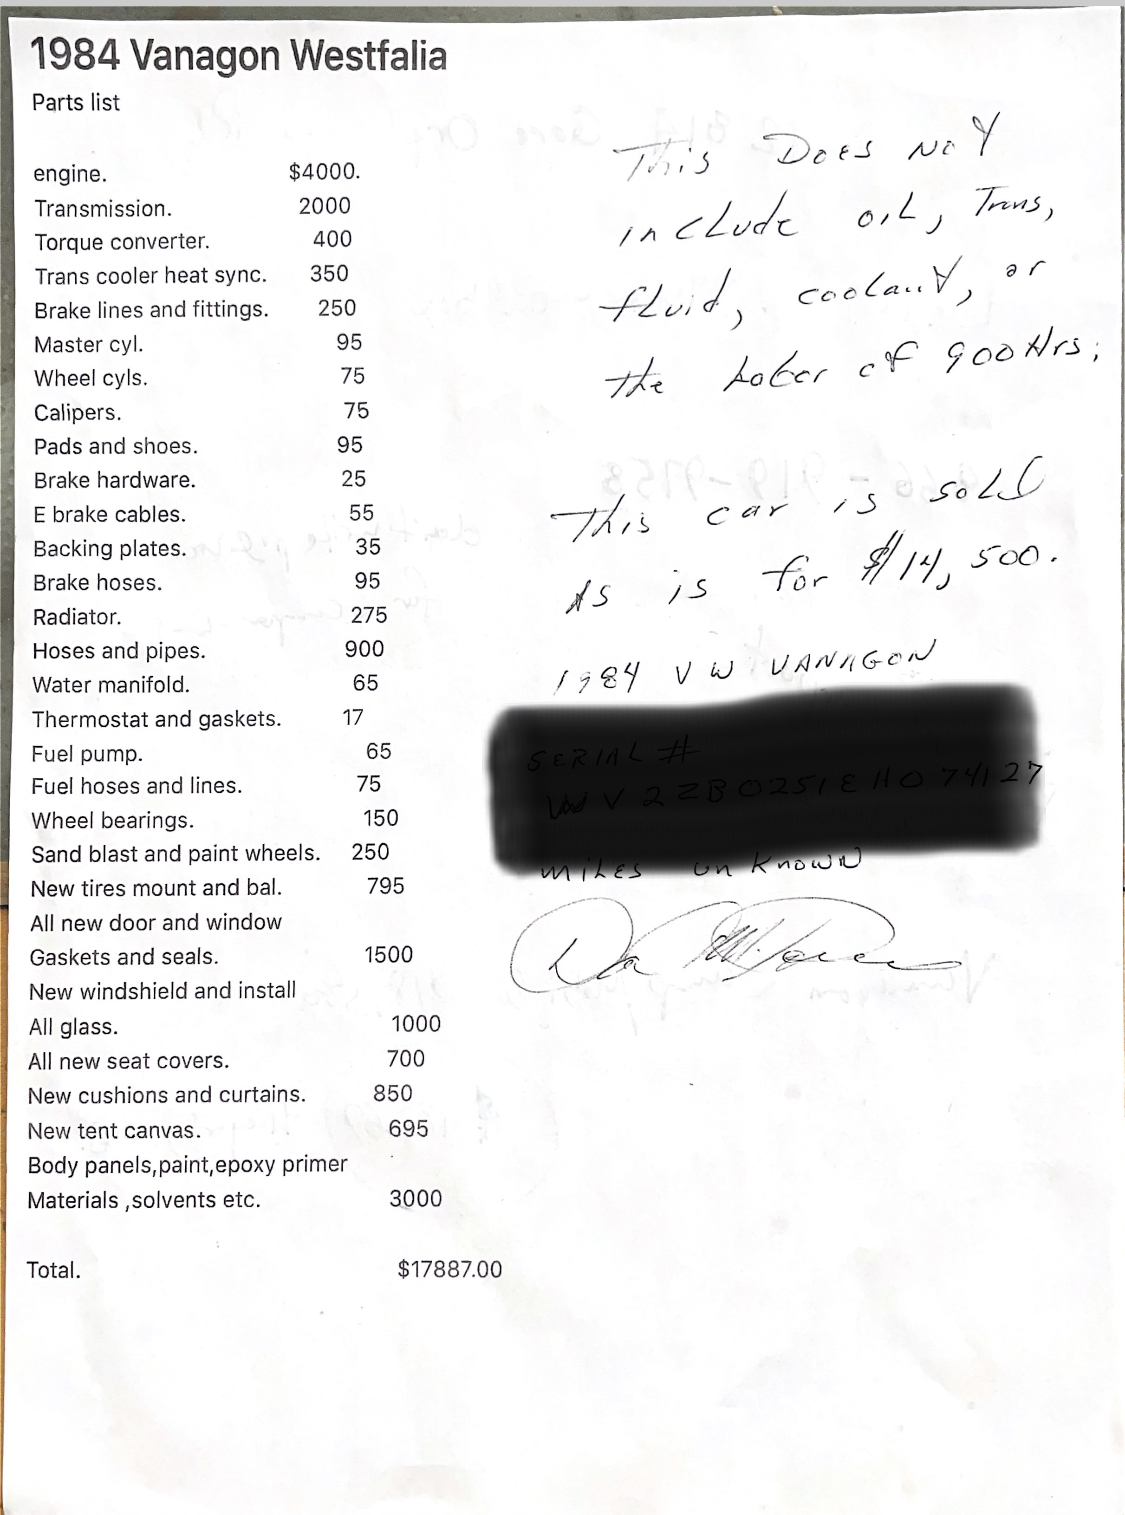 1984 Vanagon Westfalia
Parts list
engine. $4000.
Transmission. 2000
Torque converter. 400
Trans cooler heat sync. 350
Brake lines and fittings. 250
Master cyl. 95
Wheel cyls. 75
Calipers. 75
Pads and shoes. 95
Brake hardware. 25
E brake cables. 55
Backing plates. 35
Brake hoses. 95
Radiator. 275
Hoses and pipes. 900
Water manifold. 65
Thermostat and gaskets. 17
Fuel pump. 65
Fuel hoses and lines. 75
Wheel bearings. 150
Sand blast and paint wheels. 250
New tires mount and bal. 795
All new door and window
Gaskets and seals. 1500
New windshield and install
All glass. 1000
All new seat covers. 700
New cushions and curtains. 850
New tent canvas. 695
Body panels,paint,epoxy primer
Materials ,solvents etc. 3000
Total. $17887.00
This Does Not
include oil, Trans,
fluid, coolant, or
the Labor of 900 Hrs.
This car is sold
As is for $14,500.
1984 VW VANAGON
miles unknown